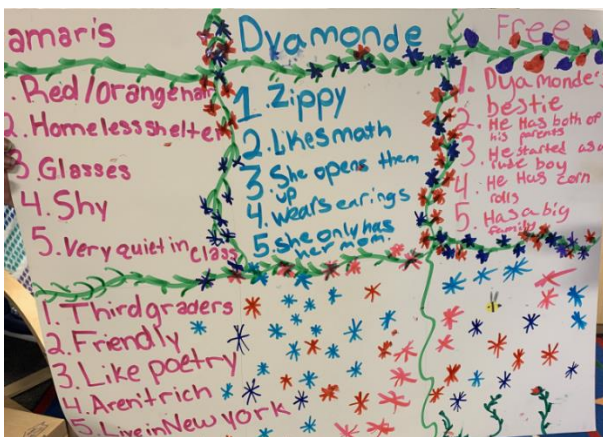 amaris
. Red/Orange hair
2. Homeless shelter
3. Glasses
4. Shy
5. Very quiet in class
Dyamonde
1. Zippy
2. Likes math
3. She opens them
up
4. Wears earings
5. She only has
her mom.
Free
1. Dyamonde's
bestie
2. He Has both of
his parents
3. He started as a
rude boy
4. He Has corn
rolls
5. Has a big
family
1. Third graders
2. Friendly
3. Like poetry
4. Aren't rich
5. Live in New york